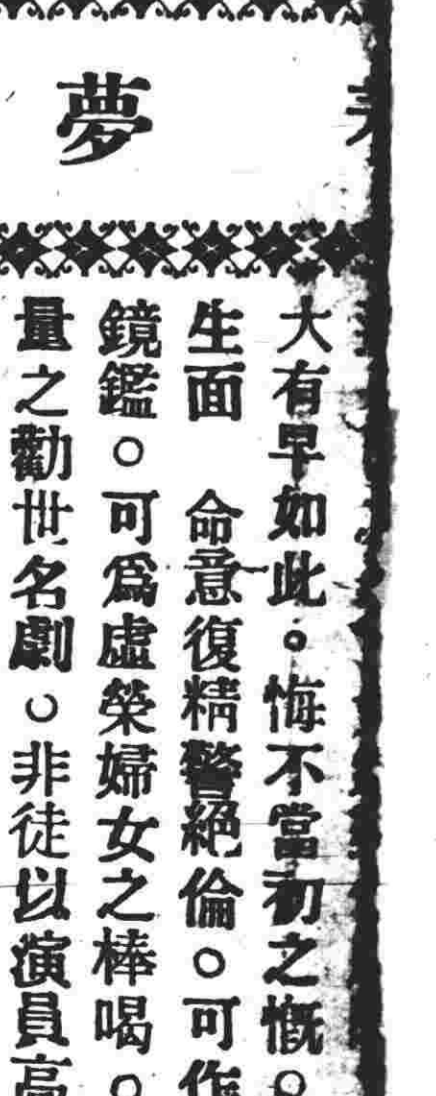 夢
大有早如此。悔不當初之慨。
生面　命意復精警絕倫。可作
鏡鑑。可爲虛榮婦女之棒喝。
量之勸世名劇。非徒以演員高